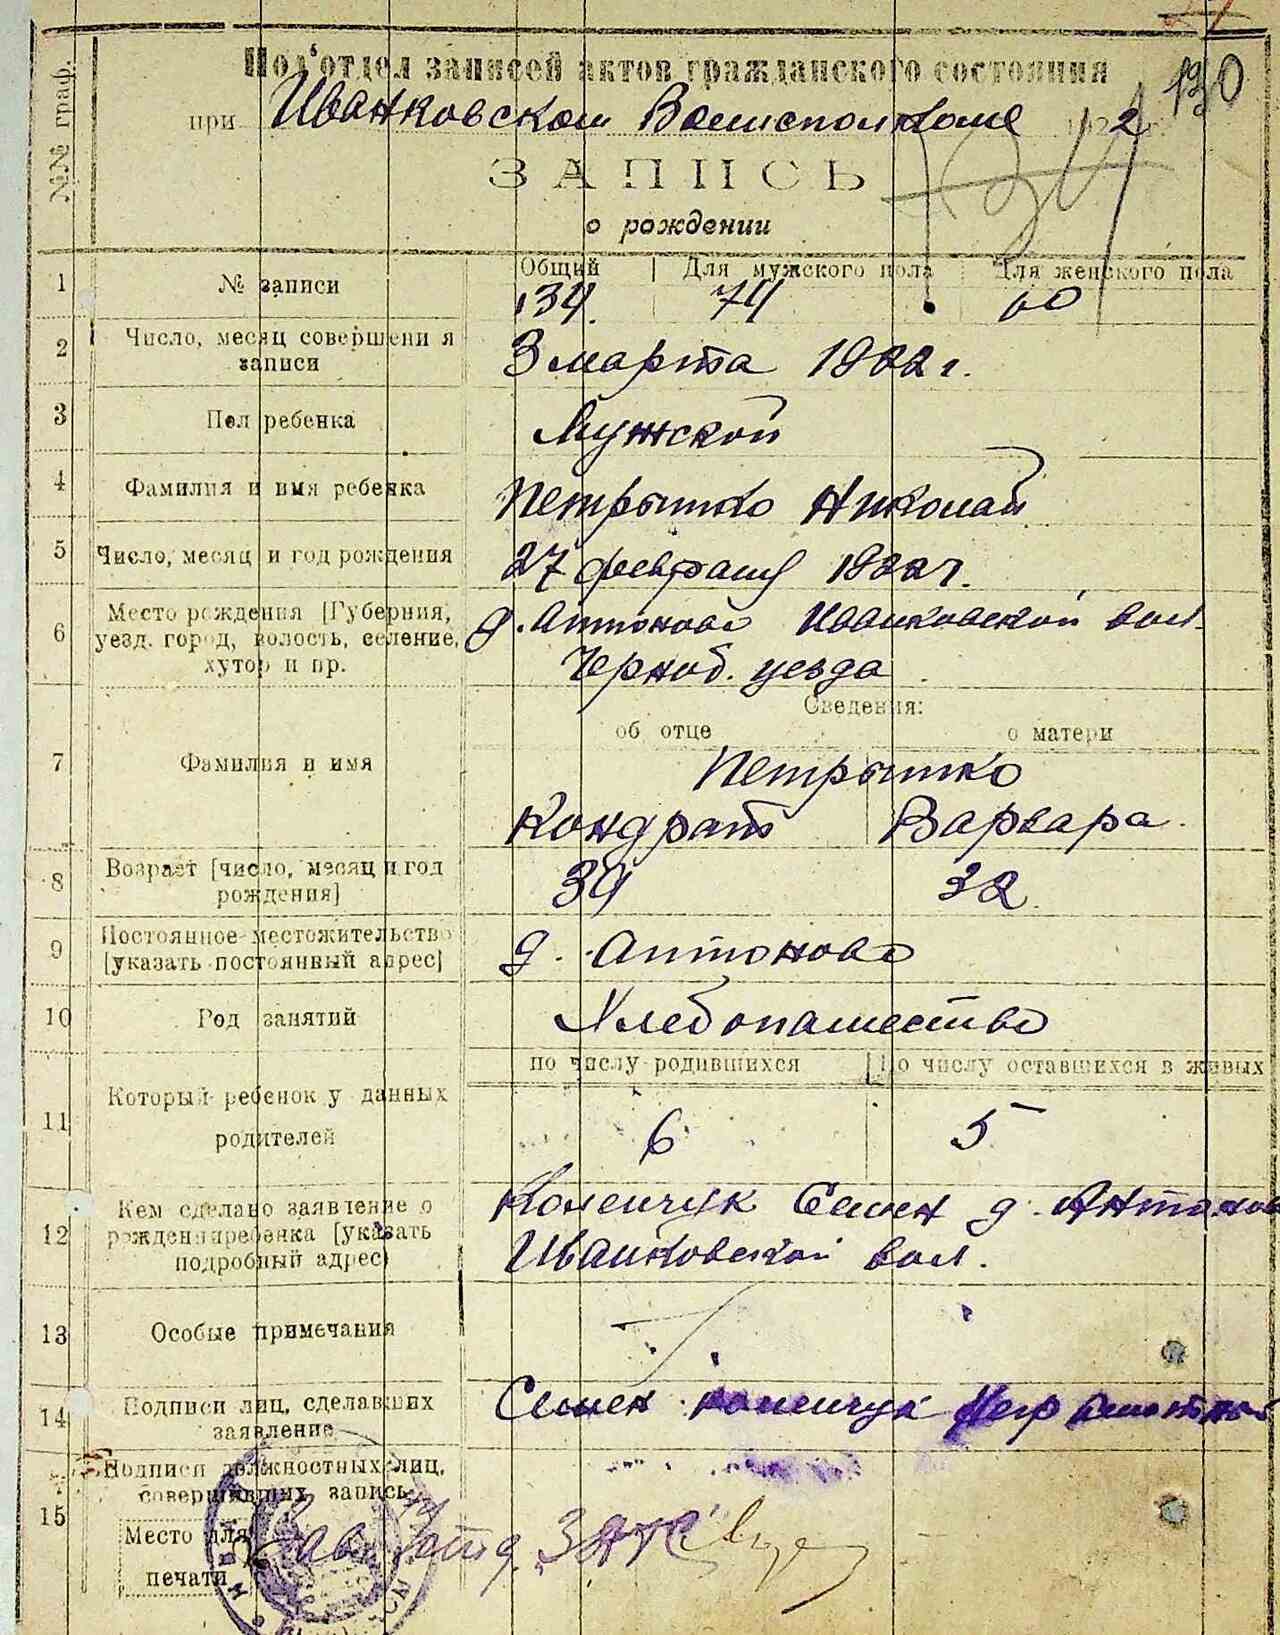 130
Под'отдел записей актов гражданского состояния
при Иванковском Волисполкоме 1922
ЗАПИСЬ
о рождении
№№ граф.
1 № записи Общий Для мужского пола Для женского пола
134. 74 60
2 Число, месяц совершения записи 3 марта 1922 г.
3 Пол ребенка Мужской
4 Фамилия и имя ребенка Петрытко Николай
5 Число, месяц и год рождения 27 февраля 1922 г.
6 Место рождения [Губерния, уезд, город, волость, селение, хутор и пр. д. Антоново Иванковской вол.
Черноб. уезда
Сведения:
об отце о матери
7 Фамилия и имя Петрытко
Кондрат Варвара.
8 Возраст [число, месяц и год рождения] 39 32.
9 Постоянное местожительство [указать постоянный адрес] д. Антоново
10 Род занятий Хлебопашество
по числу родившихся По числу оставшихся в живых
11 Который ребенок у данных родителей 6 5
12 Кем сделано заявление о рождении ребенка [указать подробный адрес) Коленчук Семен д. Антонов
Иванковской вол.
13 Особые примечания
14 Подписи лиц, сделавших заявление Семен Коленчук Неграмотный
15 Подписи должностных лиц, совершивших запись
Место для печати Зав. ЗАГС